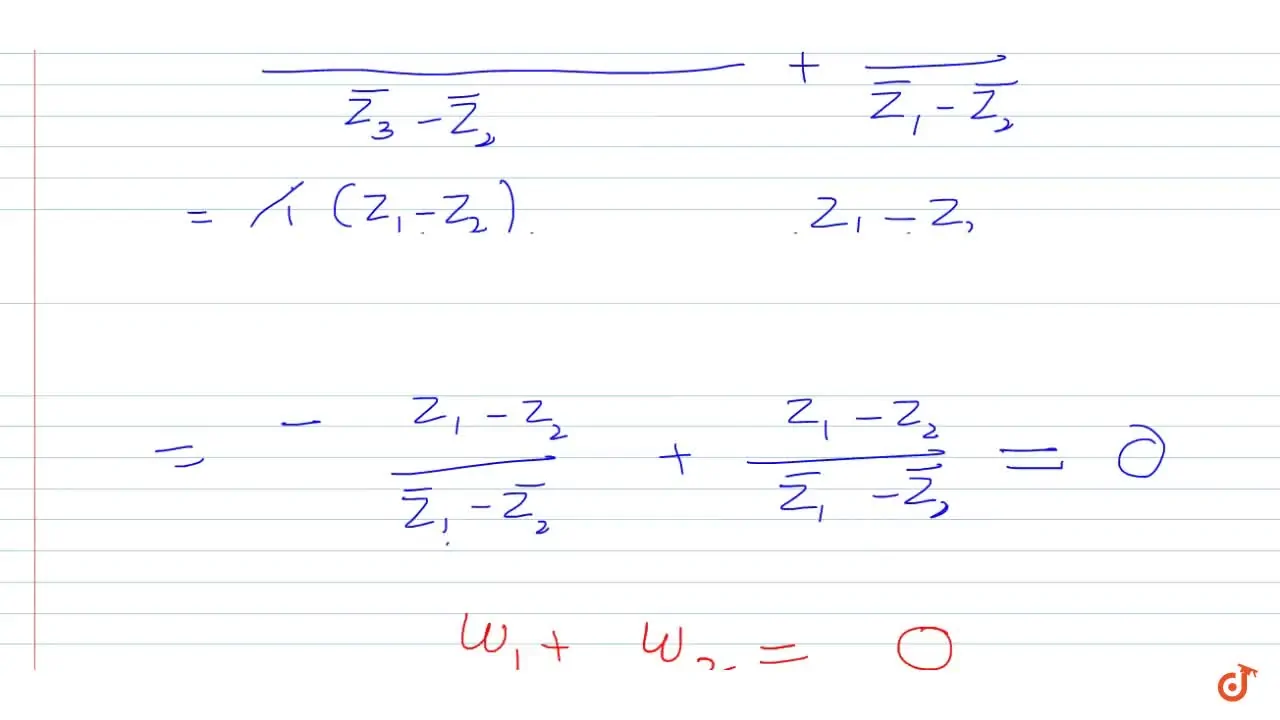 +
z̄₃ - z̄₂ z̄₁ - z̄₂
= (z₁ - z₂) z₁ - z,
= - z₁ - z₂ + z₁ - z₂ = 0
z̄₁ - z̄₂ z̄₁ - z̄₂
w₁ + w₂ = 0